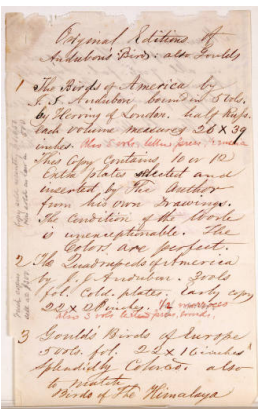 Original Editions of
Audubon's Birds also Goulds
1 The Birds of America by
J. J. Audubon bound in 5 Vols.
by Herring of London. half Russ.
each volume measures 26 X 39
inches. Also 5 vols letter press
This Copy Contains 10 or 12
Extra plates selected and
inserted by The Author
from his own Drawings.
The Condition of the Work
is unexceptionable. The
Colors are perfect.
2 The Quadrupeds of America
by J. J. Audubon. 2 vols
fol. Cold. plates. Early copy
22 X 28 inches. 1/2 morocco
Also 3 vols letter press, bound.
3 Gould's Birds of Europe
5 vols. fol. 22 X 16 inches
Splendidly Colored. also
to
Birds of The Himalaya